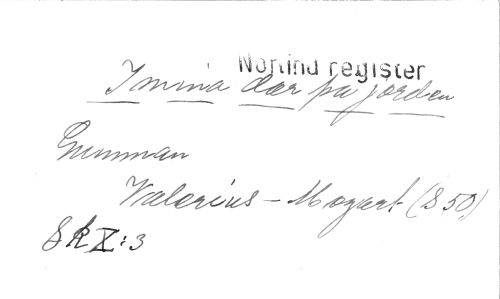 Norlind register
I mina dar på jorden
Gumman
Valerius – Mozart (S 50)
Sk X:3